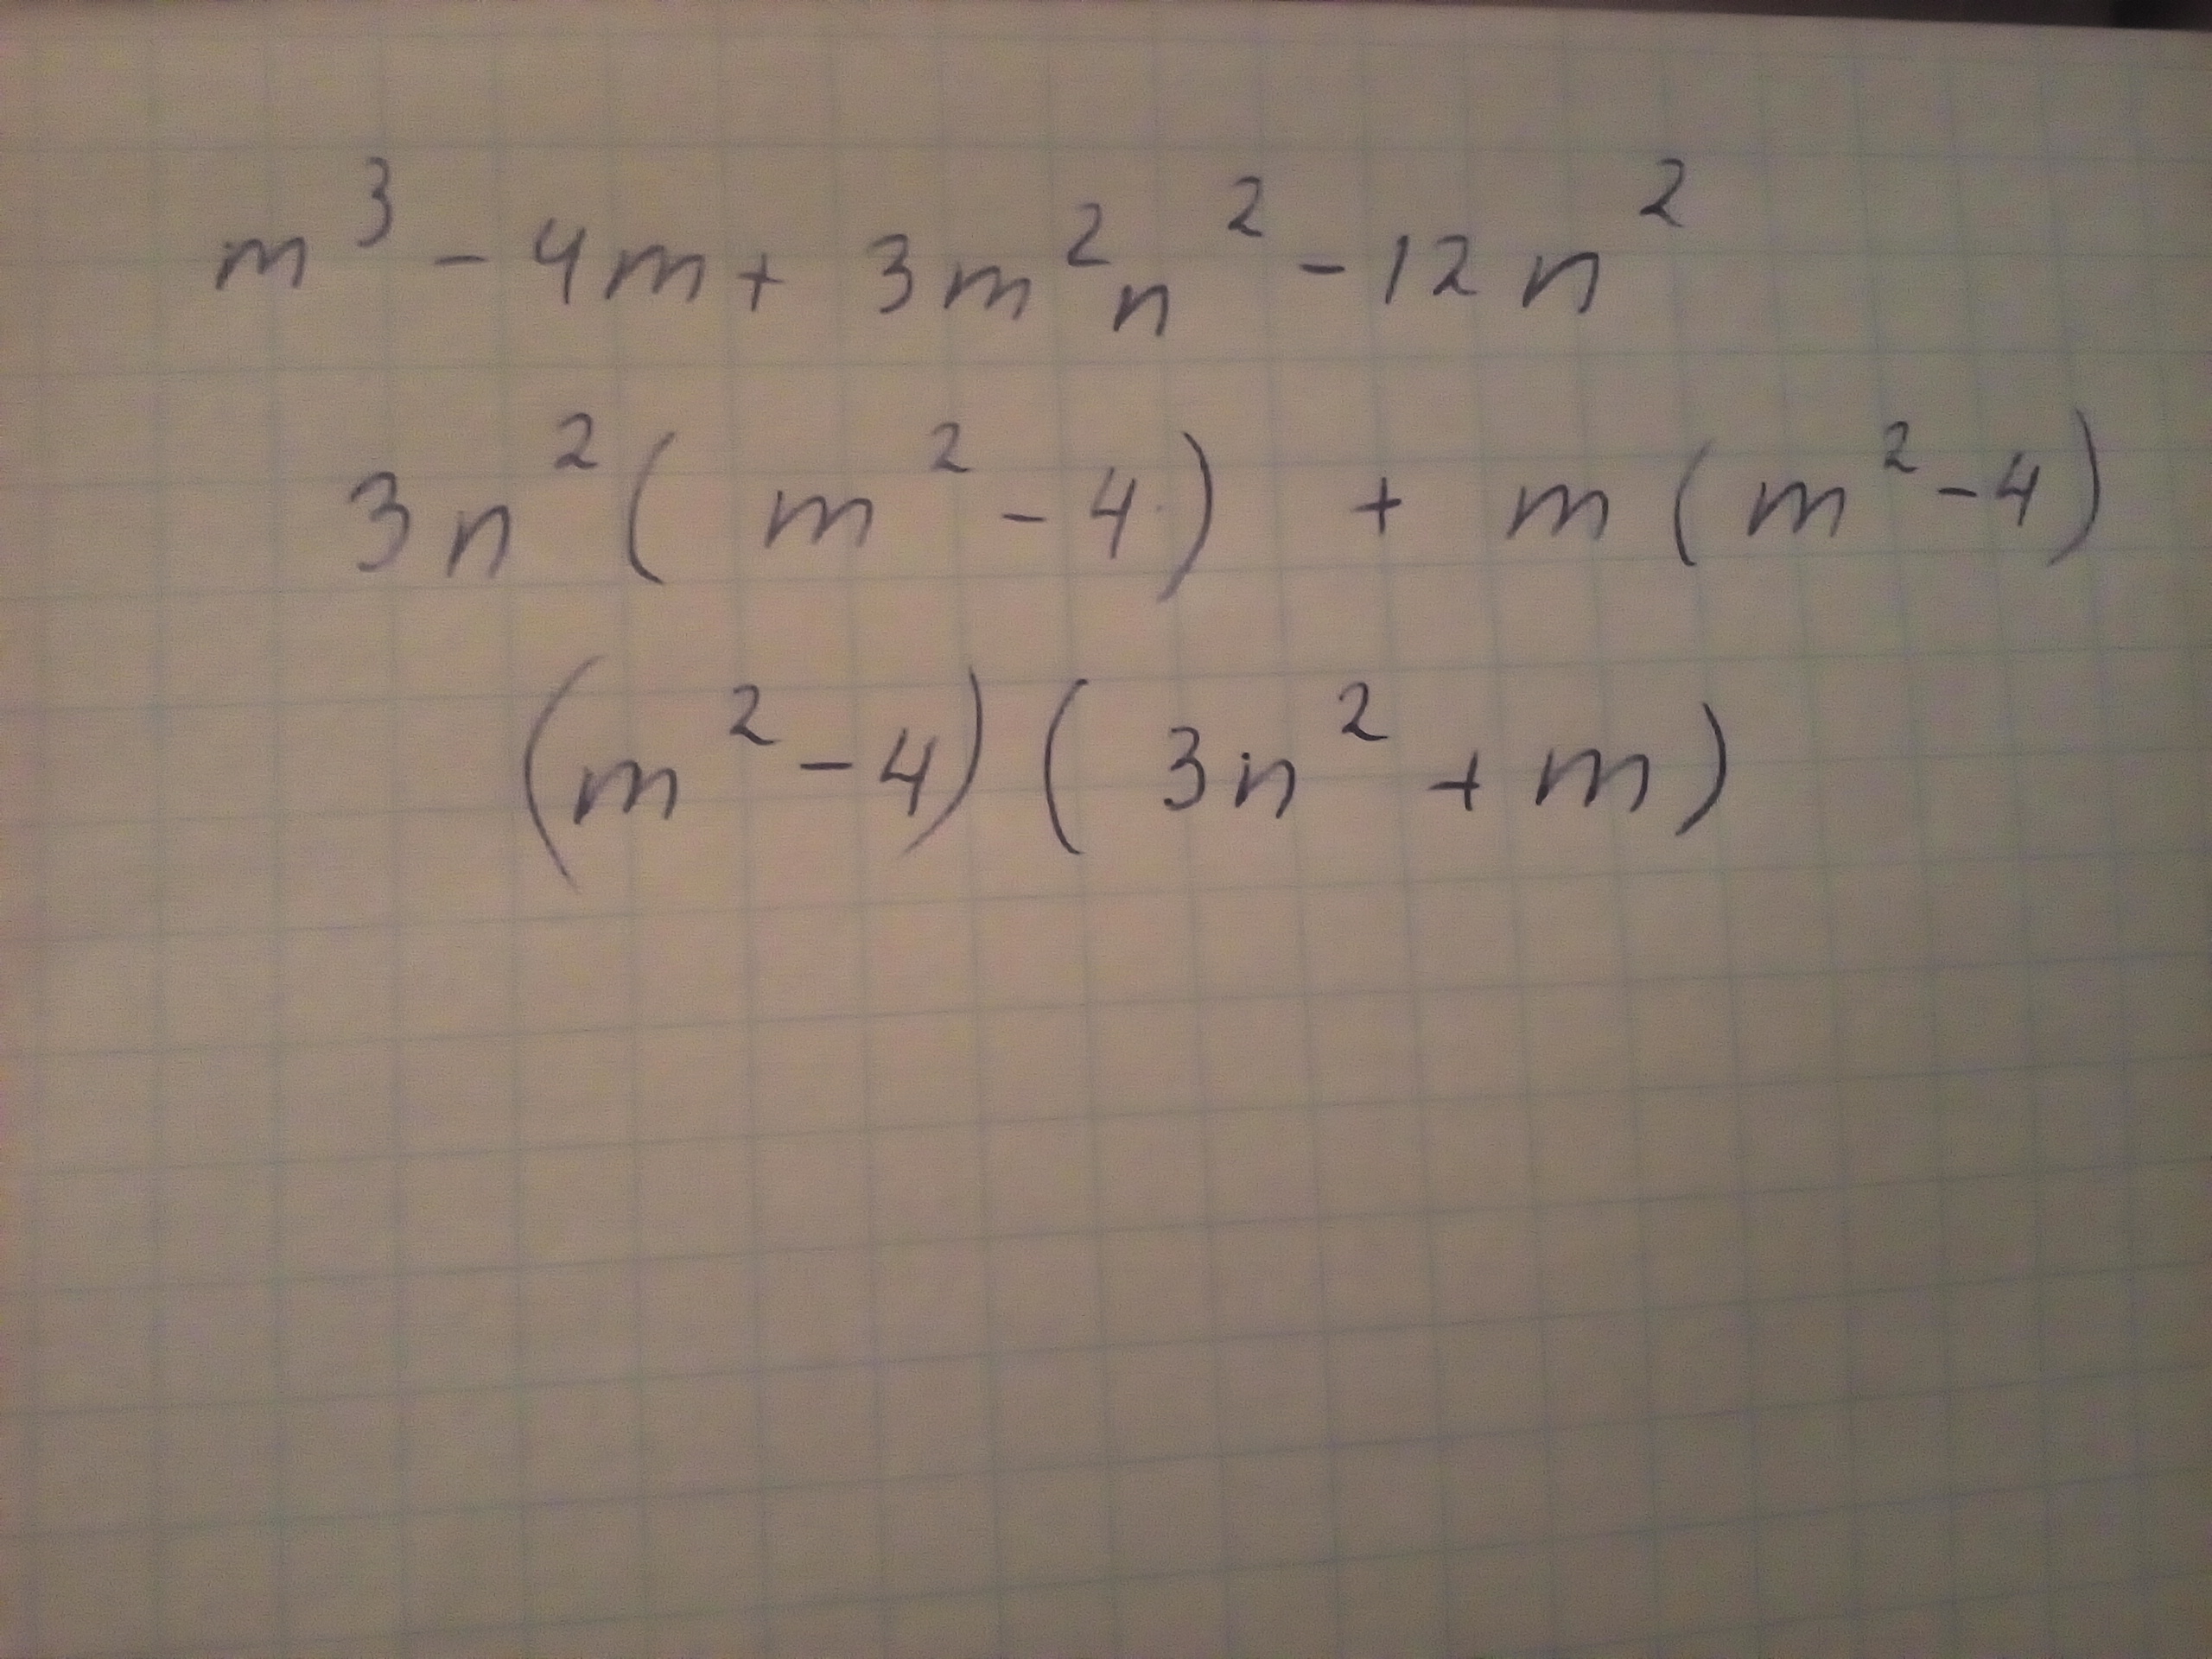 m³ - 4m + 3m²n² - 12n²
3n²(m² - 4) + m(m² - 4)
(m² - 4)(3n² + m)